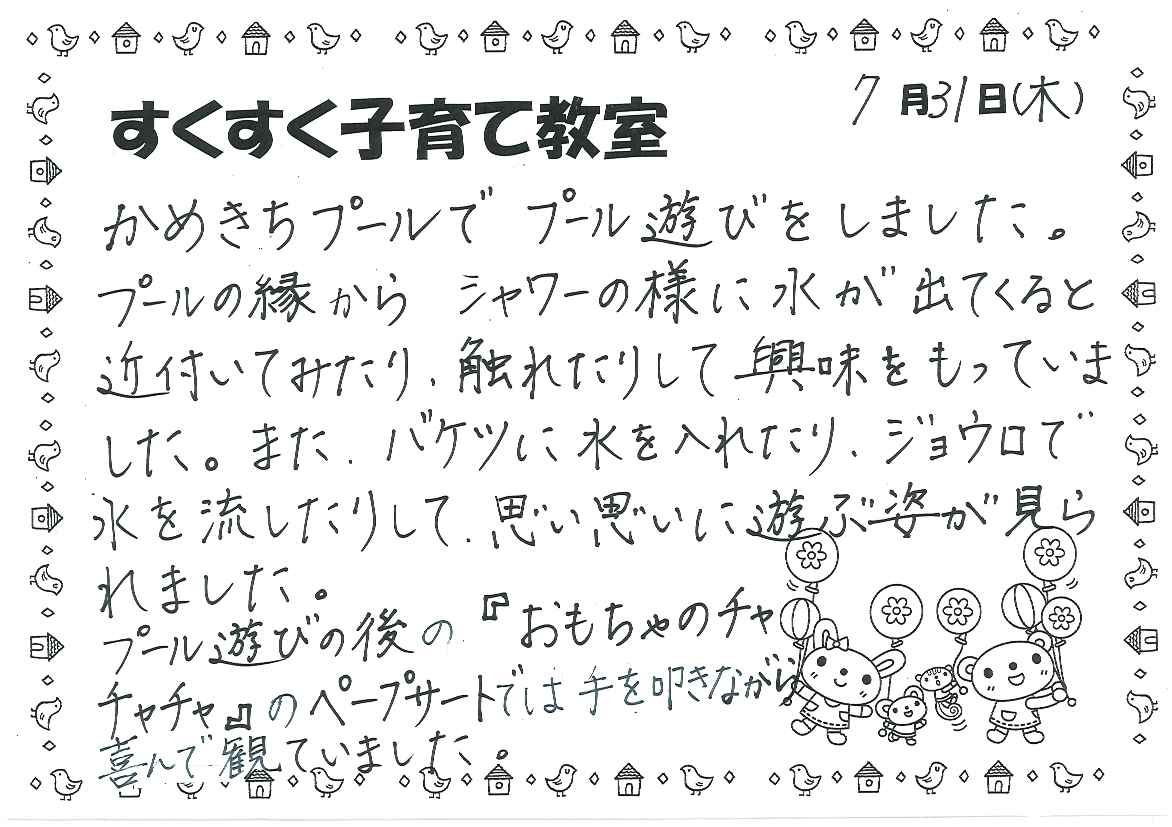 7月31日(木)
すくすく子育て教室
かめきちプールで プール遊びをしました。
プールの縁から シャワーの様に水が出てくると
近付いてみたり、触れたりして興味をもっていま
した。また、バケツに水を入れたり、ジョウロで
水を流したりして、思い思いに遊ぶ姿が見ら
れました。
プール遊びの後の『おもちゃのチャ
チャチャ』のペープサートでは手を叩きながら
喜んで観ていました。